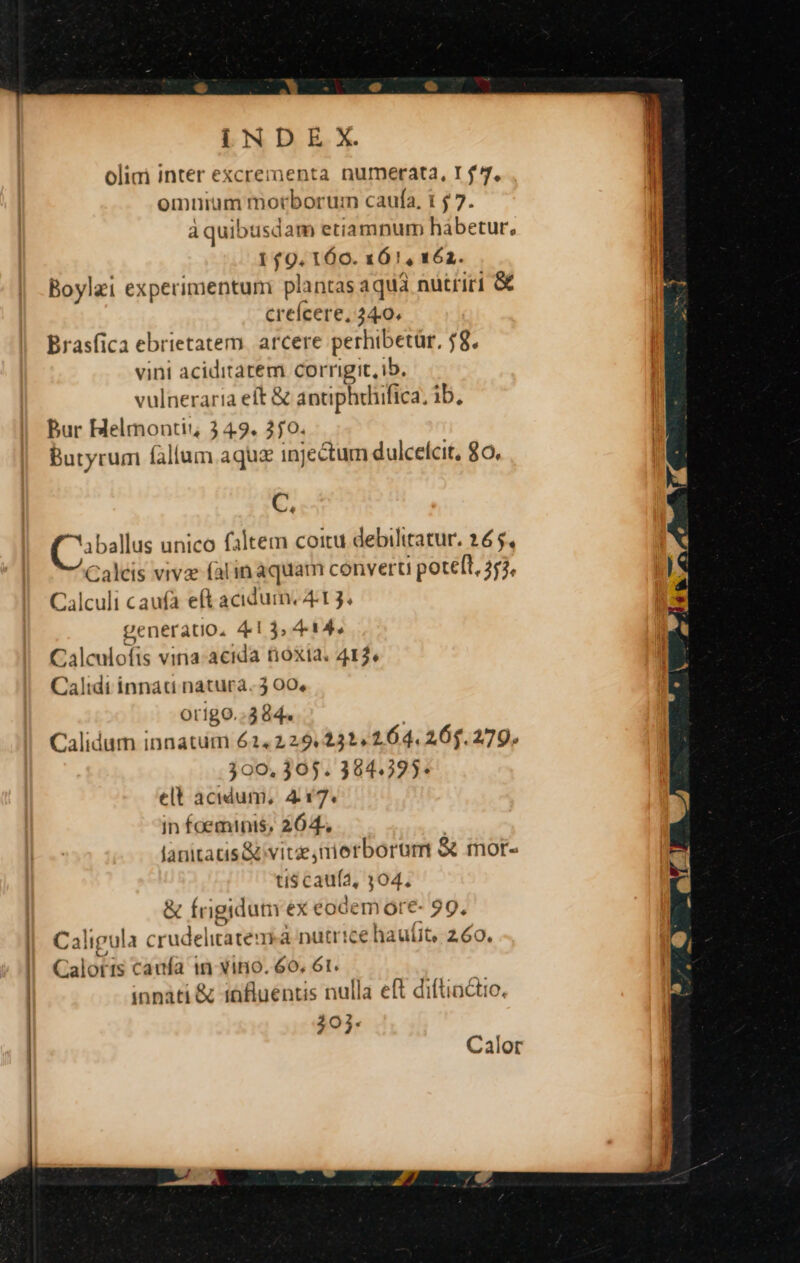 INDEX.
olim inter excrementa numerata, 157.
omnium morborum cauſa, 157.
à quibusdam etiamnum habetur,
159. 160. 161, 162.
Boylæi experimentum plantas aquâ nutriri &
creſcere, 340.
Brasſica ebrietatem arcere perhibetùr, 58.
vini aciditatem corrigit, ib.
vulneraria eſt & antiphthiſica, ib.
Bur Helmontii, 349. 350.
Butyrum ſalſum aquæ injectum dulceſcit, 80.
C.
Caballus unico ſaltem coitu debilitatur. 265.
Calcis vivæ ſal in aquam converti poteſt, 353.
Calculi cauſa eſt acidum. 413.
generatio. 413, 414.
Calculoſis vina acida noxia. 413.
Calidi innati natura. 300.
origo. 384.
Calidum innatum 61. 229. 231. 264. 265. 279.
300. 305. 384. 395.
eſt acidum, 417.
in fœminis, 264.
ſanitatis & vitæ, morborum & mor-
tis cauſa, 304.
& frigidum ex eodem ore. 99.
Caligula crudelitatem à nutrice hauſit, 260.
Caloris cauſa in vino. 60, 61.
innati & influentis nulla eſt diſtinctio.
303.
Calor